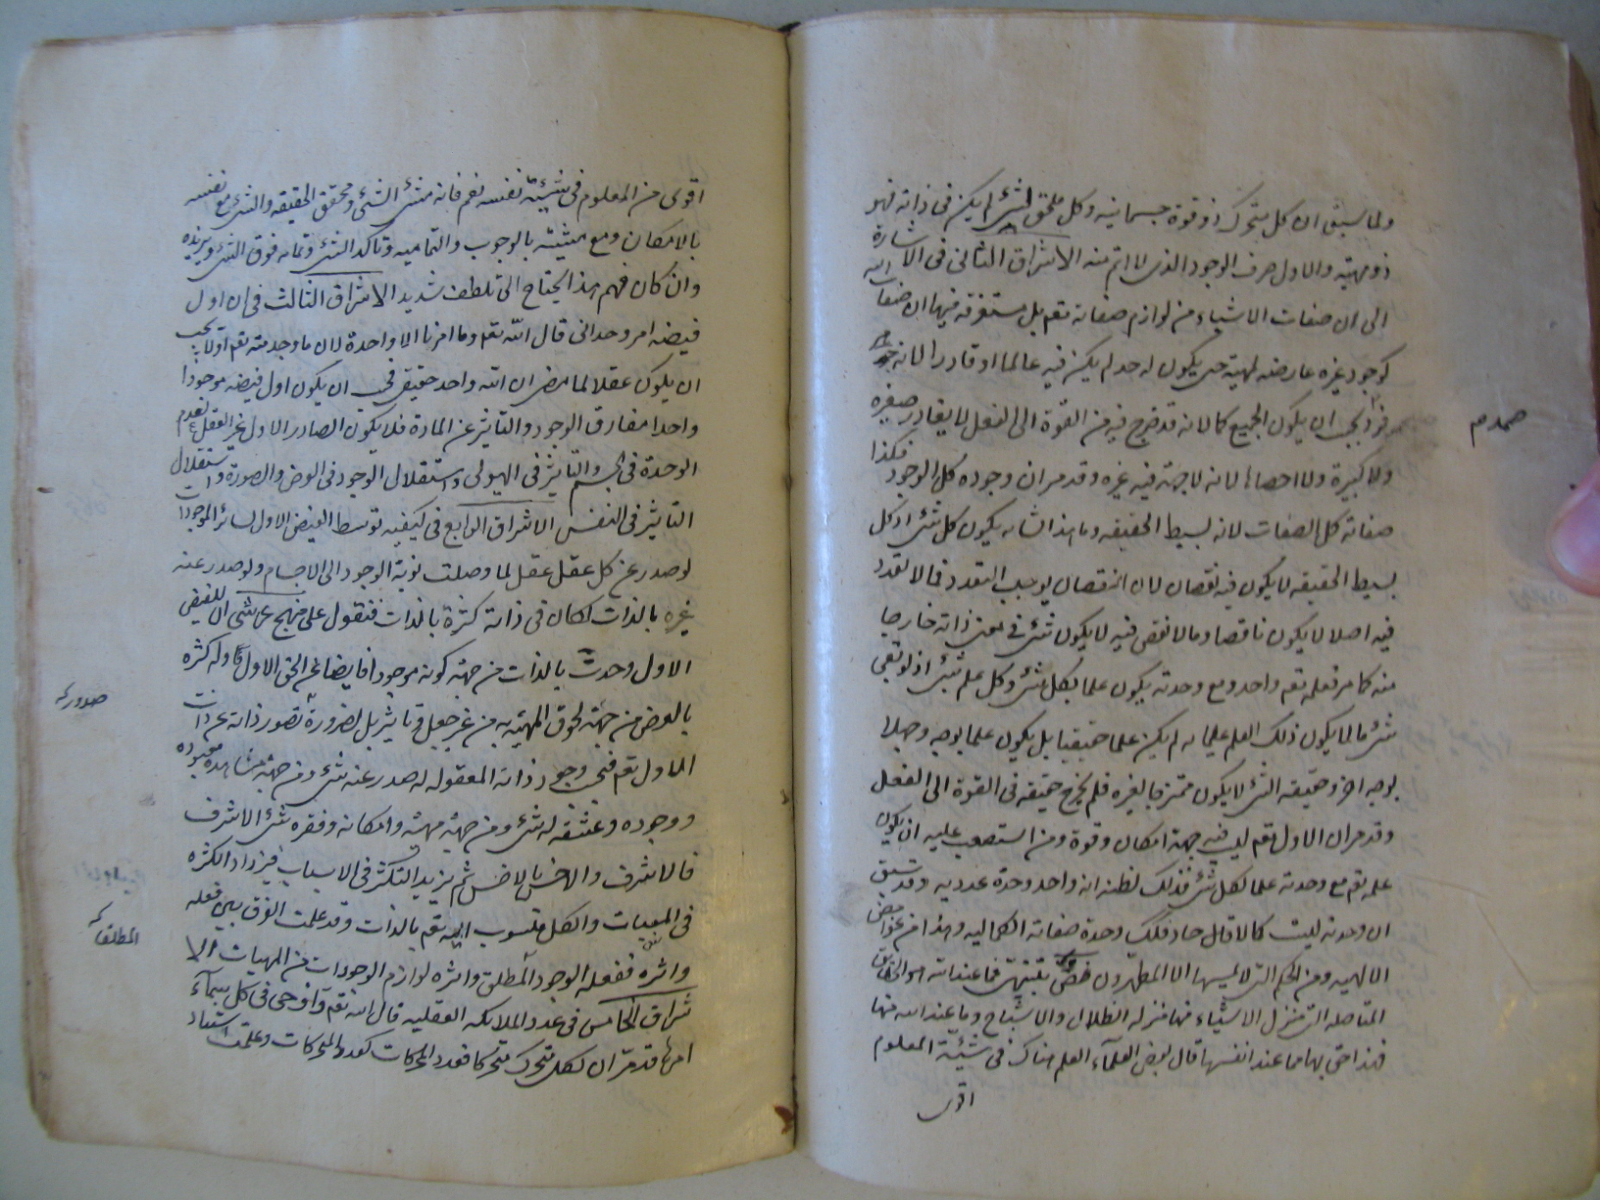 ولما سبق ان كل متحرك ذو قوة جسمانيه وكل ملحق لشئ لم يكن فى ذاته فهو
ذو مهية والاول صرف الوجود الذى لا اتم منه الاشراق الثانى فى الاشارة
الى ان صفات الاشياء من لوازم صفاته تعم بل مستغرقه فيها ان صفات الله
كوجود غيره عارضه لمهية حتى يكون له حد لم يكن فيه عالما او قادرا لانه
فوذ يجب ان يكون الجميع كما لانه قد خرج فيه من القوة الى الفعل لا يغادر صغيره
صمدم
ولا كبيرة الا احصاها لانه لا جهة فيه غيره وقد مر ان وجوده كل الوجود فكذا
صفاته كل الصفات لانه بسيط الحقيقه وما هذا شانه يكون كل شئ اذ كل
بسيط الحقيقه لا يكون فيه نقصان لان النقصان يوجب التعدد فما لا تعدد
فيه اصلا لا يكون ناقصا وما لا نقص فيه لا يكون شئ فى معنى ذاته خارجا
منه كما مر فعله تعم واحد ومع وحدته يكون علما بكل شئ وكل علم شئ اذ لو بقى
شئ ما لا يكون ذلك العلم علما به لم يكن علما حقيقيا بل يكون علما بوجه وجهلا
بوجه اخر وحقيقه الشئ لا يكون ممتزجا بغيره فلم يخرج حقيقه فى القوة الى الفعل
وقد مر ان الاول تعم ليس فيه جهة امكان وقوة ومن استصعب عليه ان يكون
علمه تعم مع وحدته علما لكل شئ فذلك لظنه انه واحد وحدة عدديه وقد سبق
ان وحدته ليست كما لا قال حاد فكك وحدة صفاته الكماليه وهذا من غوامض
الالهيه ومن الحكم التى لا يمسها الا المطهرون فما عند الله هو الحقايق
المتاصله التى تنزل الاشياء منها منزله الظلال والاشباح وما عند الله منها
فهذا حق بها مما عند انفسها قال بعض العلمآء العلم هناك فى شيئية المعلوم
اقوى
اقوى من المعلوم فى شيئية نفسه نعم فانه منشئ الشئ ومحقق الحقيقه والشئ مع نفسه
بالامكان ومع مشيئه بالوجوب والتماميه وتاكد الشئ وتمامه فوق الشئ ويزيده
وان كان فهم هذا يحتاج الى تلطف شديد الاشراق الثالث فى ان اول
فيضه امر وحدانى قال الله تعم وما امرنا الا واحدة لان ما وجد منه تعم اولا يجب
ان يكون عقلا لما مضى ان الله واحد حقيقى فيجب ان يكون اول فيضه موجودا
واحدا مفارق الوجود والتاثير عن المادة فلا يكون الصادر الاول غير العقل لعدم
الوحدة فى الجسم والتاثير فى الهيولى واستقلال الوجود فى العرض والصورة واستقلال
التاثير فى النفس الاشراق الرابع فى كيفيه توسط الفيض الاول لسائر الموجودات
لو صدر عن كل عقل عقل لما وصلت نوبة الوجود الى الاجسام ولو صدر عنه
غيره بالذات لكان فى ذاته كثرة بالذات فنقول على منهج عرشى ان للفيض
الاول وحدت بالذات من جهة كونه موجودا فايضا عن الحق الاول وله كثره
بالعرض من جهة لحوق المهية به من غير جعل وتاثير بل لضرورة تصور ذاته عن ذات
صدور
الاول تعم فمن وجود ذاته المعقوله له صدر عنه شئ ومن جهة مشاهده معبوده
ووجوده وعشقه له شئ ومن جهة مهيته وامكانه وفقره شئ الاشرف
فالاشرف والاخس بالاخس ثم يزيد التكثر فى الاسباب فيزداد الكثره
فى المسببات والكل منسوب اليه تعم بالذات وقد علمت الفرق بين فعله
المطلقا
واثره ففعله الوجود المطلق واثره لوازم الوجودات من المهيات الا
شراق الخامس فى عدد الملائكه العقليه قال الله تعم واوحى فى كل سمآء
امرها قد مر ان لكل متحرك محركا فعدد المحركات كعدد المتحركات وعلمت استناد